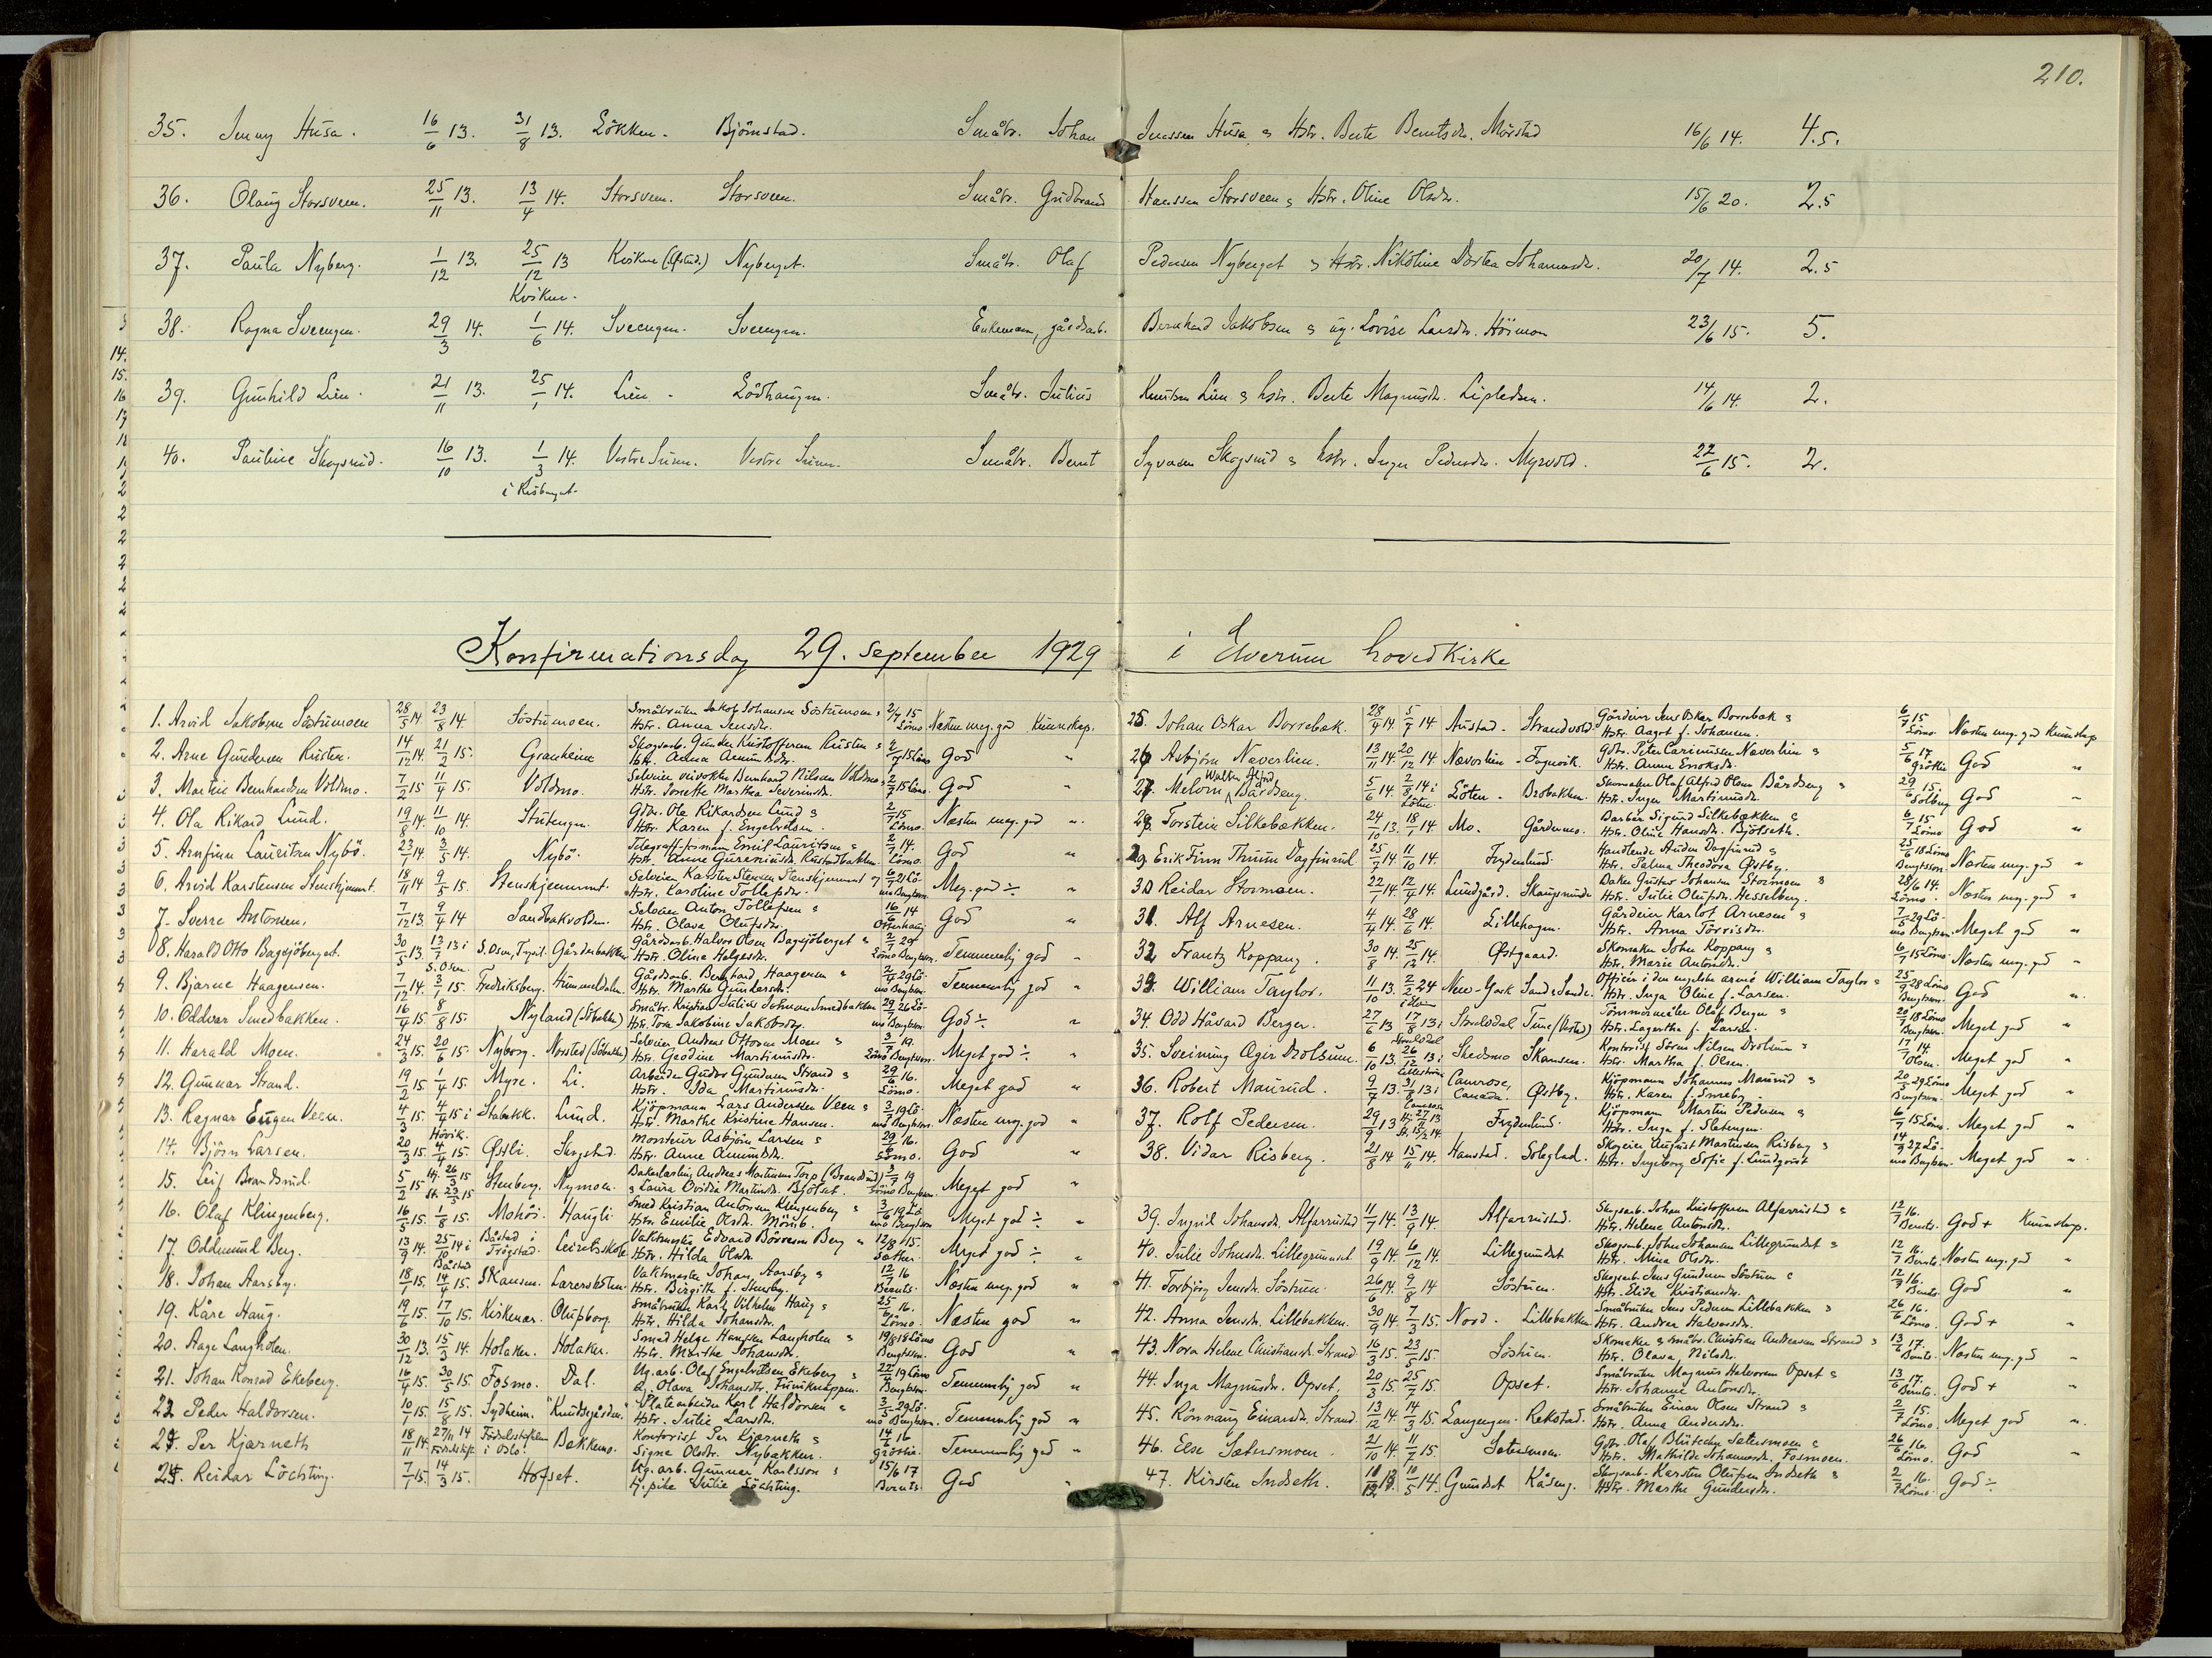 210.
35. Jenny Husa. 16/6 13. 31/8 13. Løkken. Bjørnstad. Småbr. Johan Jenssen Husa & Hstr. Berte Berntsdr. Mørstad 16/6 14. 4.5.
36. Olaug Storsveen. 25/11 13. 13/4 14. Storsveen. Storsveen. Småbr. Gudbrand Hanssen Storsveen & Hstr. Oline Olsdr. 15/6 20. 2.5
37. Paula Nyberg. 1/12 13. 25/12 13 Kvikne Nyberget. Småbr. Olaf Pedersen Nyberget & Hstr. Nikoline Dortea Johannesdr. 20/7 14. 2.5
Kvikne.
38. Ragna Sveengen. 29/3 14. 1/6 14. Sveengen. Sveengen. Enkemann, gårdsarb. Bernhard Jakobsen & ug. Lovise Larsdr. Höimon 23/6 15. 5.
39. Gunhild Lien. 21/11 13. 25/1 14. Lien. Lödhaugen. Småbr. Julius Knutsen Lien & hstr. Berte Magnusdr. 14/6 14. 2.
40. Pauline Skogsrud. 16/10 13. 1/3 14. Vestre Vestre Småbr. Bernt Syversen Skogsrud & hstr. Inger Pedersdr. Myrvold. 22/6 15. 2.
i Risberget.
Konfirmationsdag 29. september 1929 i Elverum hovedkirke
1. Arvid Jakobsen Söstumoen 28/5 14 23/8 14 Söstumoen. Småbruker Jakob Johansen Söstumoen & Hstr. Anna Jensdr. 2/7 15 Lömo. Næsten meg. god Kunnskap.
2. Arne Gundersen Rusten. 14/12 14. 21/2 15. Granheim Skogsarb. Gunder Kristoffersen Rusten & Hstr. Anna Amundsdr. 2/7 15 Lömo God "
3. Martin Bernhardsen Voldmo. 7/2 15 11/4 15. Voldmo. Selveier Bernhard Nilsen Voldmo & Hstr. Josette Marthea Severinsdr. 2/7 15 Lömo. God "
4. Ola Rikard Lund. 19/8 14. 11/10 14. Stutengen. Gdbr. Ola Rikardsen Lund & Hstr. Karen f. Engebretsen. 2/7 15 Lömo. Næsten meg. god "
5. Arnfinn Lauritsen Nybö. 23/1 14. 3/5 14. Nybö. Telegraf-formann Emil Lauritsen & Hstr. Anne Gureniusdr. Rustadbakken. 2/7 14. Lömo. God "
6. Arvid Karstensen Stenskjemmet. 18/11 14 9/5 15. Stenskjemmet. Selveier Karsten Stensen Stenskjemmet & Hstr. Karoline Tollefsdr. 6/7 21 Lömo Bengtson. Meg. god ÷ "
7. Sverre Antonsen. 7/12 13. 9/4 14 Sandbakvolden. Selveier Anton Tollefsen & Hstr. Olava Olufsdr. 16/6 14 Otterhaug God "
8. Harald Otto Bagsjöberget. 30/5 13. 13/7 13 i S. Osen. S. Osen, Trysil. Gårderbakken Gårdsarb. Halvor Olsen Bagsjöberget & Hstr. Oline Helgesdr. 2/7 29 Lömo Bengtson. Temmelig god "
9. Bjarne Haagensen. 7/12 14. 3/1 15. Fredriksberg. Hummeldalen. Gårdsarb. Bernhard Haagensen & Hstr. Marthe Gundersdr. 2/7 29 Lömo Bengtson. Temmelig god "
10. Oddvar Smedbakken. 16/4 15. 8/8 15. Nyland Småbr. Kristian Julius Johansen Smedbakken Hstr. Tora Jakobine Jakobsdr. 29/7 26 Lömo Bengtson. God ÷ "
11. Harald Moen. 24/3 15. 20/6 15. Nyborg. Norsted Selveier Andreas Ottosen Moen & Hstr. Gaodine Martinusdr. 3/7 19. Lömo Bengtson. Meget god ÷ "
12. Gunnar Strand. 19/2 15. 1/4 15. Myre. Li. Arbeider Gudor Gundersen Strand & Hstr. Ida Martinusdr. 29/6 16. Lömo. Meget god "
13. Ragnar Eugen Veen. 4/3 15. 4/4 15 i Hövik. Stabekk. Lund. Kjöpmann Lars Andersen Veen & Hstr. Marthe Kristine Hansen. 3/7 19 Lömo Bengtson. Næsten meg. god "
14. Björn Larsen. 20/3 15. 4/4 15. Østli. Skogstad. Montör Asbjörn Larsen & Hstr. Anne Amundsdr. 29/6 16. Lömo. God "
15. Leif Brandsrud. 5/2 15 Hj. 26/3 15 St. 23/5 15 Stenberg. Nymoen. Bakerlærling Andreas Martinsen Torp (Brandsrud) & Laura Ovidia Martinsdr. Bjölset. 3/7 19 Lömo Bengtson. Meget god "
16. Olaf Klingenberg. 16/5 15. 1/8 15. Mohöi. Haugli. Smed Kristian Antonsen Klingenberg & Hstr. Emilie Olsdr. Mörub. 3/6 19 Lömo Bengtson Meget god ÷ "
17. Oddmund Berg. 13/9 14. 25/10 14 i Båstad Båstad i Trögstad. Leiretsskole Vaktmester Edvard Börresen Berg & Hstr. Hilda Olsdr. 12/8 15 Sæther. Meget god ÷ "
18. Johan Aarsby. 18/1 15. 14/4 15. Skansen. Lærerskolen. Vaktmester Johan Aarsby & Hstr. Birgitte f. Stensby. 12/7 16 Bernts. Næsten meg. god "
19. Kåre Haug. 19/6 15. 17/10 15. Kirkenær. Olufsborg. Småbruker Karl Vilhelm Haug & Hstr. Hilda Johansdr. 25/6 16. Lömo. Næsten god "
20. Aage Langholen. 30/12 13. 15/3 14. Holaker. Holaker. Smed Helge Hansen Langholen & Hstr. Marthe Johansdr. 19/8 18 Lömo Bengtson. God "
21. Johan Konrad Ekeberg. 16/4 15. 30/5 15. Fosmo. Dal. Ug. arb. Olaf Engebretsen Ekeberg & Olava Johansdr. Furuknappen. 22/7 19 Lömo Bengtson. Temmelig god "
22. Peder Haldorsen. 10/1 15. 15/8 15. Sydheim. "Knudsgården." Platearbeider Karl Haldorsen & Hstr. Julie Larsdr. 3/5 29 Lömo Bengtson. Temmelig god "
23. Per Kjærneth 18/11 14. 27/11 14 Fødselsstiftelsen i Oslo. Bakkemo. Kontorist Per Kjærneth & Signe Olsdr. Nybakken. 14/6 16 Gröttie. Temmelig god "
24. Reidar Löchting. 7/1 15. 14/3 15. Hofset. Ug. arb. Gunnar Karlsson & U. pike Julie Löchting. 15/6 17 Bernts. God "
25. Johan Oskar Borrebæk. 28/4 14. 5/7 14 Austad. Strandvold. Gårdeier Jens Oskar Borrebæk & Hstr. Aagot f. Johansen. 6/7 15 Lömo. Næsten meg. god Kunnskap
26. Asbjörn Næverlien. 13/11 14. 20/12 14 Næverlien. Fagervik. Gdbr. Peter Carinusen Næverlien & Hstr. Anna Eriksdr. 5/6 17 Gröttie God "
27. Melvin Walter Alfred Bårdseng. 5/6 14. 2/8 14 i Löten Löten. Brobakken. Skomaker Olaf Alfred Olsen Bårdseng & Hstr. Inger Martinusdr. 29/6 15. Solberg God "
28. Torstein Silkebækken. 24/10 13. 18/1 14. Mo. Gårdermo. Barber Sigurd Silkebækken & Hstr. Oline Hansdr. Bjölseth. 6/7 15 Lömo God "
29 Erik Finn Thune Dagfinrud 25/7 14. 11/10 14. Frydenlund. Handlende Auden Dagfinrud & Hstr. Palma Theodora Østby. 25/6 18 Lömo Bengtson. Næsten meg. god "
30 Reidar Stormoen. 22/1 14. 12/4 14. Lundgård. Skaugsrunde Baker Gustav Johansen Stormoen & Hstr. Julie Olufsdr. Hesselberg. 28/6 14. Lömo. Næsten meg. god "
31. Alf Arnesen. 4/4 14. 28/6 14. Lillehagen. Gårdeier Karlof Arnesen & Hstr. Anna Torrisdr. 7/5 29 Lömo Bengtson. Meget god "
32 Frantz Koppang. 30/8 14. 25/12 14. Østgaard. Skomaker John Koppang & Hstr. Marie Antonsdr. 6/7 15 Lömo. Næsten meg. god "
33. William Taylor. 11/10 13. 2/2 24 New-York Sand & Sande. Officer i den engelske armé William Taylor & Hstr. Inga Oline f. Larsen. 25/9 28 Lömo Bengtson. God "
34. Odd Håvard Berger. 27/6 13 17/8 13 i Strålsdal Tune (Vestad) Tömmermåler Olaf Berger & Hstr. Lagertha f. Larsen. 20/7 18 Lömo Bengtson. Meget god "
35. Sveinung Ægir Drolsum. 6/10 13. 26/12 13 i Lilleström Skedsmo Skansen. Kontorist Sören Nilsen Drolsum & Hstr. Martha f. Olsen. 17/7 14 Olsen. Meget god "
36. Robert Maurud. 9/7 13. 31/8 13 i Camrose Camrose, Canada. Østby. Kjöpmann Johannes Maurud & Hstr. Karen f. Smeby. 20/5 29 Lömo Bengtson. Meget god "
37. Rolf Pedersen. 29/9 13 Hj. 27/11 13 St. 15/2 14. Frydenlund. Kjöpmann Martin Pedersen & Hstr. Inga f. Sletengen. 6/7 15 Lömo. Meget god "
38. Vidar Risberg. 21/8 14 15/11 14. Hanstad. Soleglad. Skogeier August Martinsen Risberg & Hstr. Ingeborg Sofie f. Lundqvist 14/9 27 Lömo Bengtson. Meget god "
39. Ingrid Johansdr. Alfarrustad 11/7 14. 13/9 14. Alfarrustad. Skogsarb. Johan Kristoffersen Alfarrustad & Hstr. Helene Antonsdr. 12/7 16. Bernts. God + Kunnskap.
40. Julie Johnsdr. Lillegrundset 19/9 14. 6/12 14. Lillegrundset Skogsarb. John Johansen Lillegrundset & Hstr. Mina Olsdr. 12/7 16. Bernts. Næsten meg. god "
41. Torbjörg Jensdr. Söstuen. 26/6 14 9/8 14 Söstuen. Skogsarb. Jens Gundersen Söstuen & Hstr. Elida Kristiansdr. 12/7 16. Bernts. God "
42. Anna Jensdr. Lillebakken. 30/9 14. 7/3 15. Nord- Lillebakken Småbruker Jens Pedersen Lillebakken & Hstr. Andrea Halvorsdr. 26/6 16. Lömo. God + "
43. Nora Helene Christiansdr. Strand. 16/3 15. 23/5 15 Söstuen. Skomaker & småbr. Christian Andreassen Strand & Hstr. Olava Nilsdr. 13/6 17. Bernts. Næsten meg. god "
44. Inga Magnusdr. Opset. 20/3 15 25/7 15. Opset. Småbruker Magnus Halvorsen Opset & Hstr. Johanne Antonsdr. 13/6 17. Bernts. God + "
45. Rönnaug Einarsdr. Strand. 13/12 14. 14/3 15. Langengen. Rekstad. Småbruker Einar Olsen Strand & Hstr. Anna Andersdr. 2/7 15. Lömo. Meget god "
46. Else Sætersmoen. 21/10 14. 11/7 15. Sætersmoen. Gdbr. Olaf Blütecher Sætersmoen & Hstr. Mathilde Johannesdr. Fosmoen. 26/6 16. Lömo. God "
47. Kirsten Indseth. 10/5 14. Grundset Kåseng. Skogsarb. Karsten Olufsen Indseth & Hstr. Marthe Gundersdr. 2/7 16. Lömo. God ÷